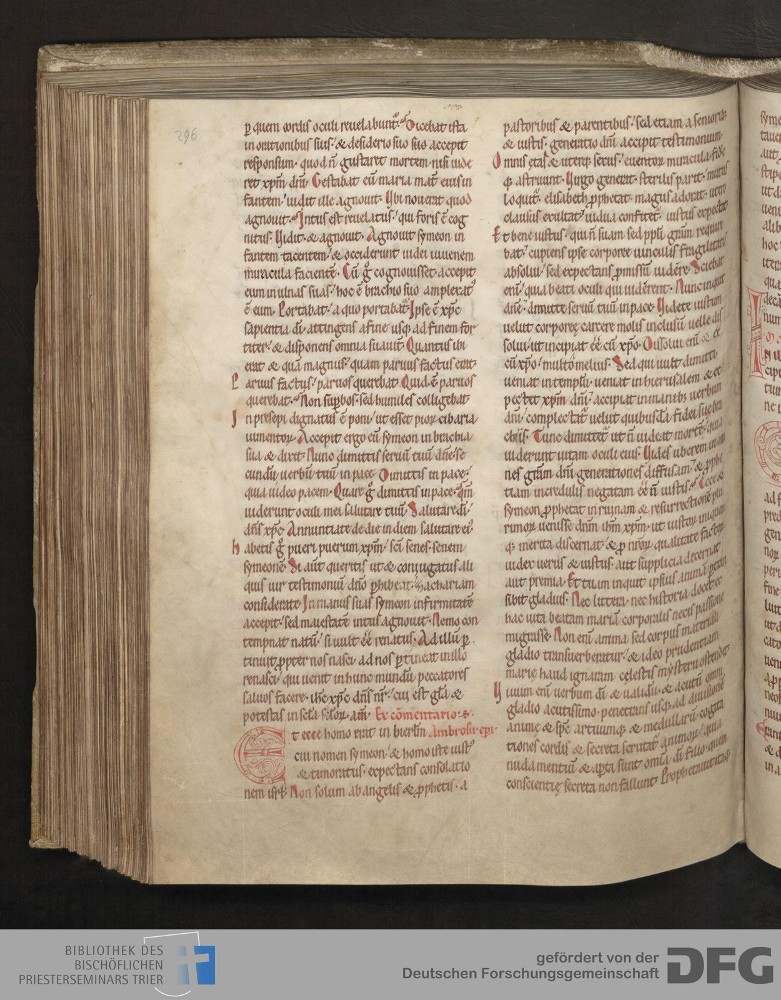 296
p quem cordis oculi revelabunt². Dicebat ista
in orationibus suis. & desiderio suo suo accepit
responsum. quod ñ gustaret mortem. nisi vide
ret xpm dñi. Gestabat eũ maria mat̃ eius in
fantem. vidit ille & agnovit. Ubi noverat quod
agnovit. Intus est revelatus. qui foris ẽ cog
nitus. Vidit. & agnovit. Agnovit symeon in
fantem tacentem. & occiderunt iudei iuvenem
miracula facientẽ. Cũ g̊ cognovisset. accepit
eum in ulnas suas. hoc ẽ brachio suo amplexat²
ẽ eum. Portabat. a quo portabat². Ipse ẽ xp̃c
sapientia dĩ attingens a fine usq; ad finem for
titer. & disponens omnia suavit̃. Quantus ibi
erat & quã magnus. quam parvus factus erat.
Parvus factus. parvos querebat. Quid ẽ parvos
querebat. Non supbos. sed humiles colligebat.
In presepi dignatus ẽ poni. ut esset pioꝝ cibaria
iumentoꝝ. Accepit ergo eũ symeon in brachia
sua & dixit. Nunc dimittis servũ tuũ dñe. se
cundũ verbũ tuũ in pace. Dimittis in pace.
quia video pacem. Quare g̊ dimittis in pace. qm̃
viderunt oculi mei salutare tuũ. Salutare dĩ.
dñs xp̃c. Annuntiate de die in diem salutare ei².
habetis g̊ pueri puerum xpm. sc̃i senes. senem
symeonẽ. Si aut̃ queritis ut & conjugatus ali
quis vir testimoniũ dño phibeat. zachariam
considerate. In manus suas symeon infirmitatẽ
accepit. sed maiestatẽ intus agnovit. Nemo con
tempnat natũ. si vult ẽẽ renatus. Ad illũ p
tinuit ppter nos nasci. ad nos ptineat in illo
renasci. qui venit in hunc mundũ peccatores
salvos facere. ih̃c xp̃c dñs nr̃. cui est gl̃a &
potestas in sc̃la sc̃loꝝ. am̃. Ex cõmentario. s.
Et ecce homo erat in hierlm̃ Ambrosii epi.
cui nomen symeon. & homo iste iust²
& timoratus. expectans consolatio
nem isrl. Non solum ab angelis & pphetis. a
pastoribus & parentibus. sed etiam a seniorib;
& iustis. generatio dñi accepit testimonium.
Omnis etas & uterq; sexus. eventoꝝ miracula fidẽ
astruunt. Virgo generat. sterilis parit. mutus
loquit². elisabeth pphetat. magus adorat. utero
clausus exultat. vidua confitet². iustus expectat.
Et bene iustus. qui ñ suam sed ppli grãm require
bat. cupiens ipse corporeę vinculis fragilitatis
absolvi. sed expectans pmissũ videre. Sciebat
enĩ. quia beati oculi qui viderent. Nunc inquit
dñe. dimitte servũ tuũ in pace. Videte iustum
velut corporeę carcere molis inclusũ velle dis
solvi. ut incipiat ẽẽ cũ xpo. Dissolvi enĩ & ẽẽ
cũ xpo. multo melius. Sed qui vult dimitti.
veniat in templũ. veniat in hierusalem. & ex
pectet xpm dñi. accipiat in manib; verbum
dñi. complectat² velut quibusdã fidei suę bra
chiis. Tunc dimittet² ut ñ videat mortẽ. quia
viderunt vitam oculi eius. Vides uberem in om
nes grãm dñi generatione diffusam. & pphe
tiam incredulis negatam ẽẽ ñ iustis. Ecce &
symeon pphetat in ruinam & resurrectionẽ plu
rimoꝝ venisse dnm ihm xpm. ut iustoꝝ iniquoꝝ
q; merita discernat. & p nr̃oꝝ qualitate factoꝝ
iudex verus & iustus aut supplicia decernat
aut premia. Et tuam inquit ipsius animã ptran
sibit gladius. Nec littera. nec historia docet. ex
hac vita beatam mariã corporalis necis passione
migrasse. Non enĩ anima sed corpus materiali
gladio transverberatur. & ideo prudentiam
marię haud ignaram celestis mysterii ostendit.
Vivum enĩ verbum dĩ & validũ. & acutũ omni
gladio acutissimo. penetrans usq; ad divisionẽ
animę & sp̃c artuumq; & medullarũ. cogita
tiones cordis & secreta scrutat² animoꝝ. quia
nuda mentiũ & apta sunt omĩa dĩ filio. quem
conscientię secreta non fallunt. Prophetavit itaq;
BIBLIOTHEK DES
BISCHÖFLICHEN
PRIESTERSEMINARS TRIER
gefördert von der
Deutschen Forschungsgemeinschaft
DFG